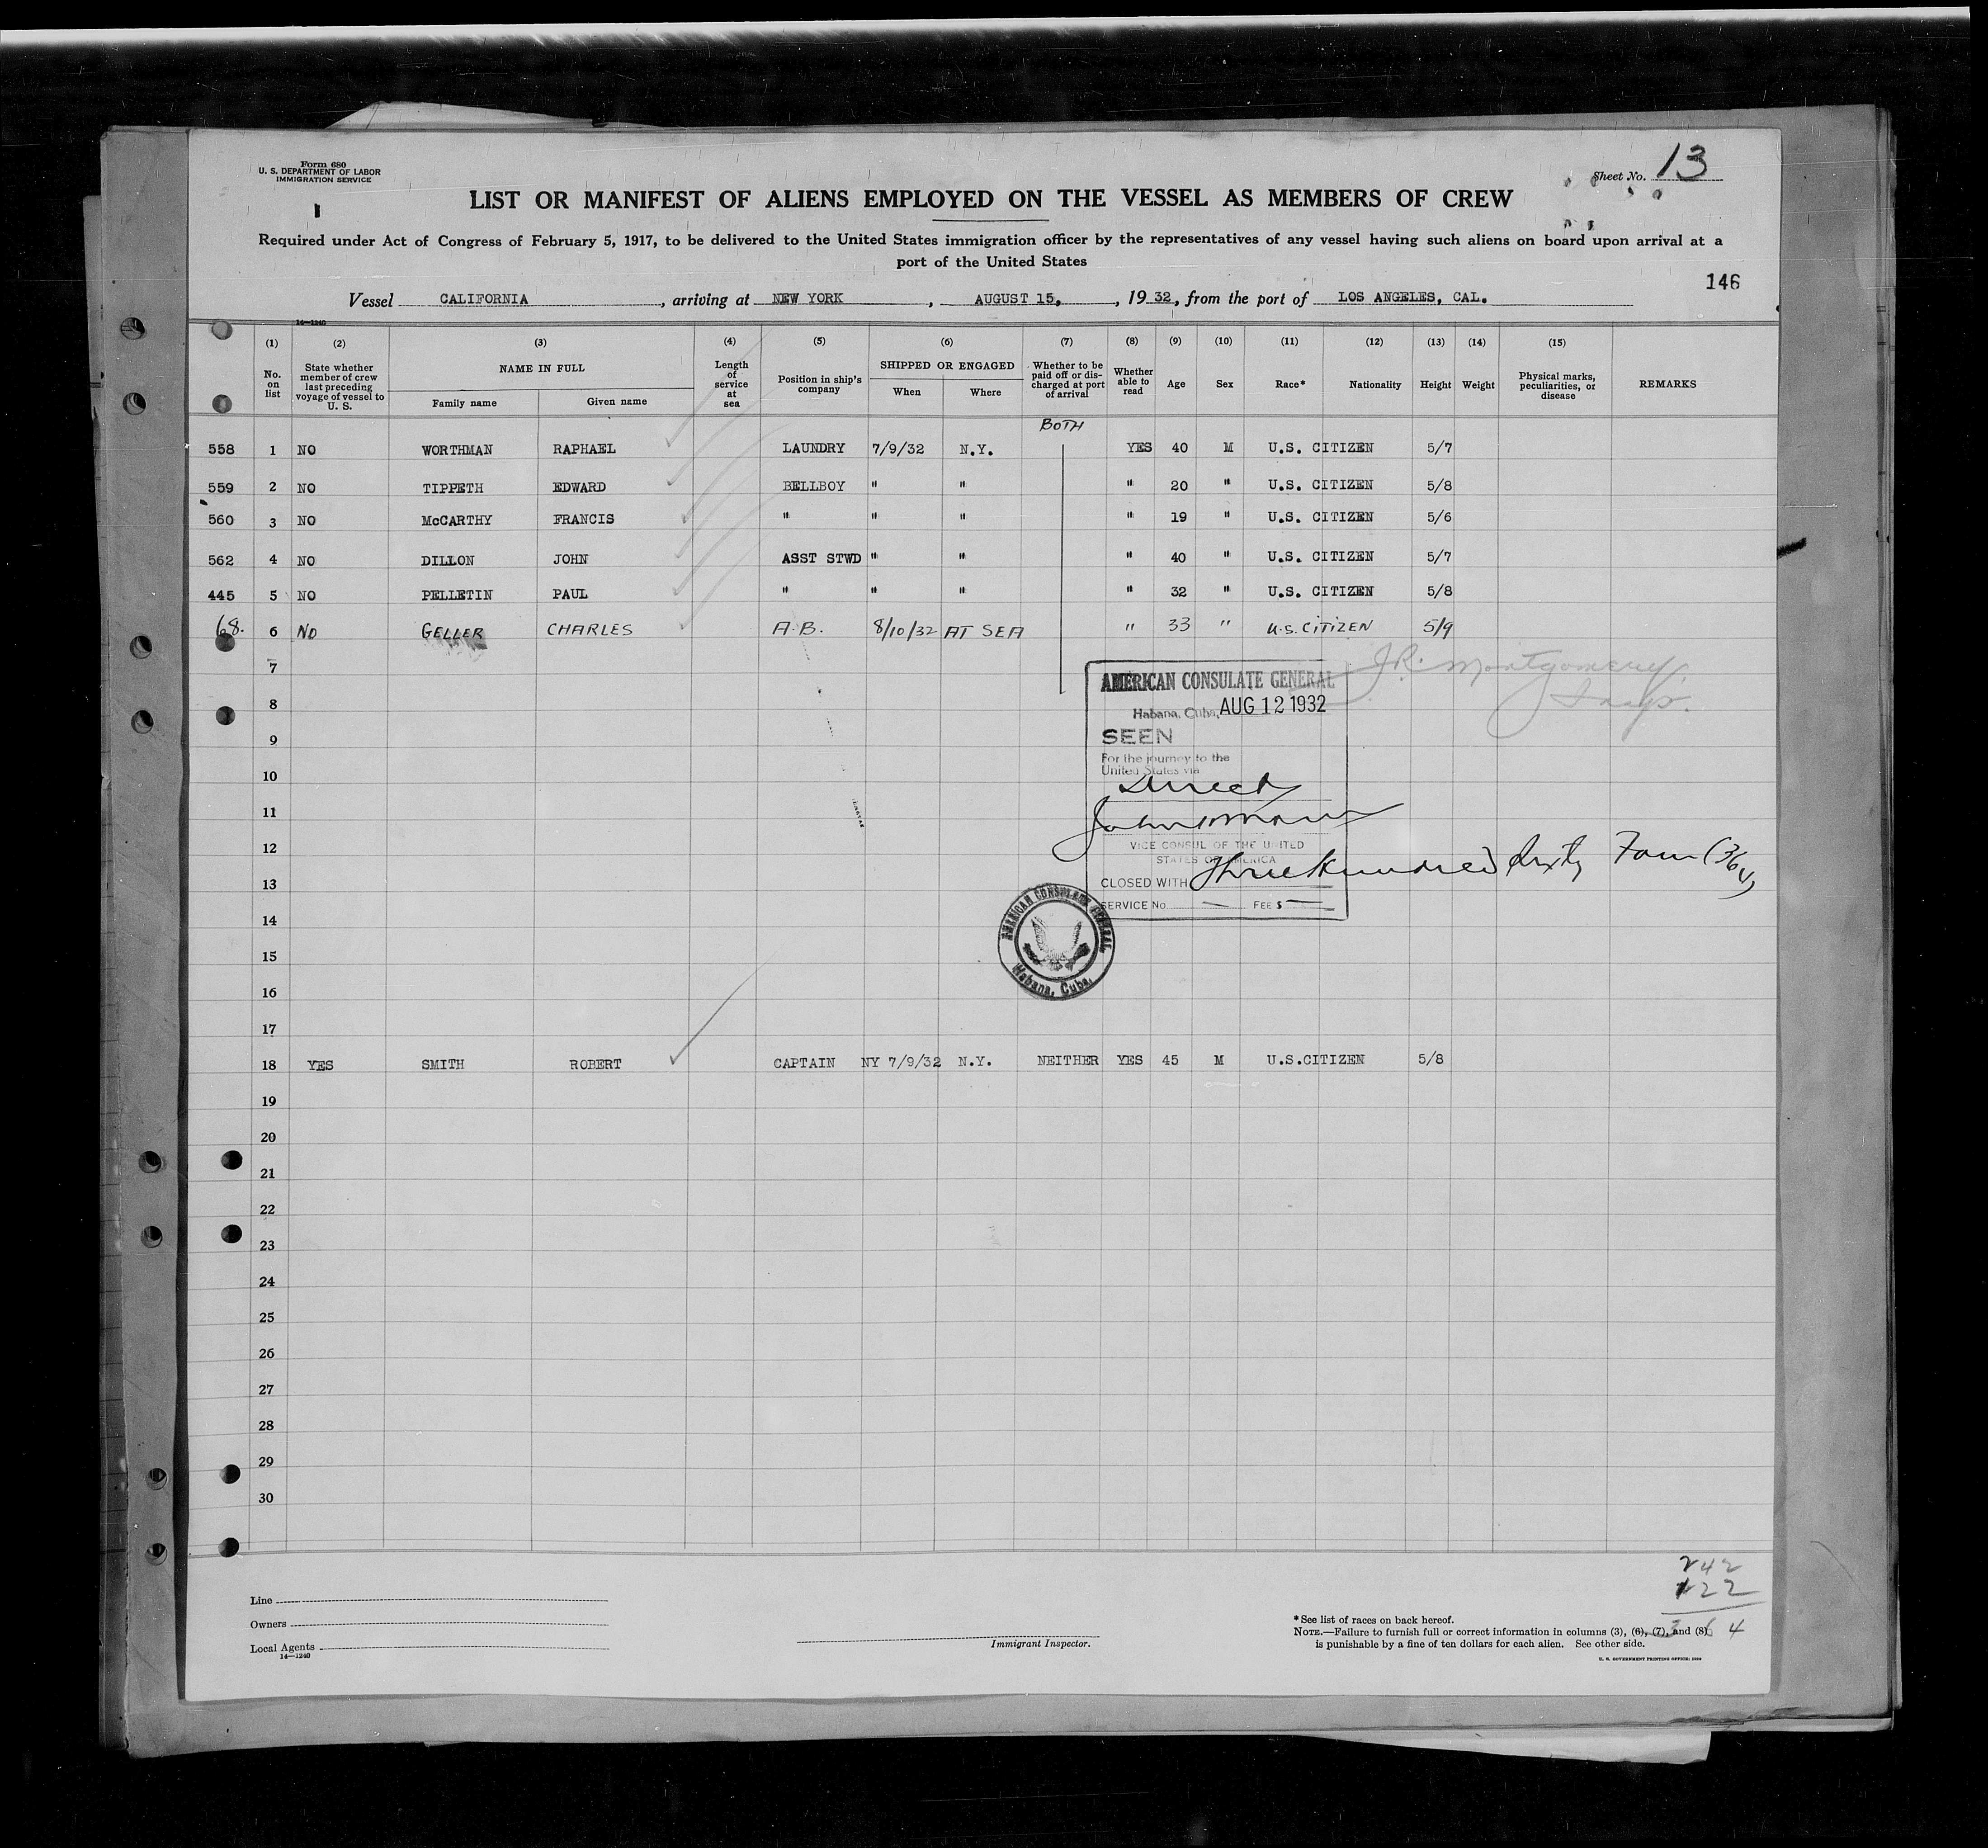 Form 680
U. S. DEPARTMENT OF LABOR
IMMIGRATION SERVICE
Sheet No. 13
LIST OR MANIFEST OF ALIENS EMPLOYED ON THE VESSEL AS MEMBERS OF CREW
Required under Act of Congress of February 5, 1917, to be delivered to the United States immigration officer by the representatives of any vessel having such aliens on board upon arrival at a
port of the United States
146
Vessel CALIFORNIA, arriving at NEW YORK, AUGUST 15, 1932, from the port of LOS ANGELES, CAL.
14—1240
(1) (2) (3) (4) (5) (6) (7) (8) (9) (10) (11) (12) (13) (14) (15)
No. on list
State whether member of crew last preceding voyage of vessel to U. S.
NAME IN FULL
Family name
Given name
Length of service at sea
Position in ship's company
SHIPPED OR ENGAGED
When
Where
Whether to be paid off or discharged at port of arrival
Whether able to read
Age
Sex
Race*
Nationality
Height
Weight
Physical marks, peculiarities, or disease
REMARKS
BOTH
558 1 NO WORTHMAN RAPHAEL LAUNDRY 7/9/32 N.Y. YES 40 M U.S. CITIZEN 5/7
559 2 NO TIPPETH EDWARD BELLBOY " " " 20 " U.S. CITIZEN 5/8
560 3 NO McCARTHY FRANCIS " " " " 19 " U.S. CITIZEN 5/6
562 4 NO DILLON JOHN ASST STWD " " " 40 " U.S. CITIZEN 5/7
445 5 NO PELLETIN PAUL " " " " 32 " U.S. CITIZEN 5/8
68. 6 NO GELLER CHARLES A.B. 8/10/32 AT SEA " 33 " U.S. CITIZEN 5/9
7
J.R. Montgomery
Insp.
AMERICAN CONSULATE GENERAL
8
Habana, Cuba, AUG 12 1932
9
SEEN
For the journey to the
United States via
10
Direct
11
12
VICE CONSUL OF THE UNITED
STATES OF AMERICA
13
CLOSED WITH Three Hundred Sixty Four (364)
SERVICE No. — FEE $ —
14
AMERICAN CONSULATE GENERAL
Habana, Cuba.
15
16
17
18 YES SMITH ROBERT CAPTAIN NY 7/9/32 N.Y. NEITHER YES 45 M U.S.CITIZEN 5/8
19
20
21
22
23
24
25
26
27
28
29
30
242
122
364
Line
Owners
Local Agents
14—1240
Immigrant Inspector.
*See list of races on back hereof.
NOTE.—Failure to furnish full or correct information in columns (3), (6), (7), and (8)
is punishable by a fine of ten dollars for each alien. See other side.